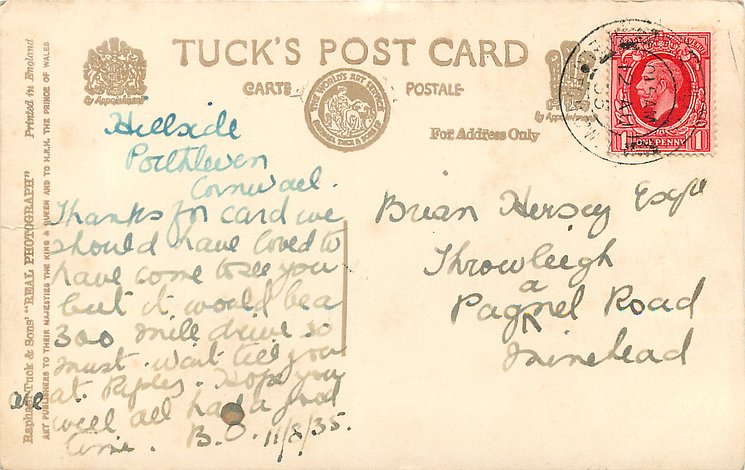 TUCK'S POST CARD
CARTE POSTALE
By Appointment
By Appointment
THE WORLD'S ART SERVICE
RAPHAEL TUCK & SONS LTD
For Address Only
ONE PENNY
1 1
Printed in England
Raphael Tuck & Sons' "REAL PHOTOGRAPH"
ART PUBLISHERS TO THEIR MAJESTIES THE KING & QUEEN AND TO H.R.H. THE PRINCE OF WALES
Hillside
Porthleven
Cornwall.
Thanks for card we
should have loved to
have come to see you
but it would be a
300 mile drive so
must wait till you
are at Ripley. Hope you
will all had a good
time. B.O. 11/8/35.
Brian Hersey Esqre
Throwleigh
Pagnel Road
a
Minehead